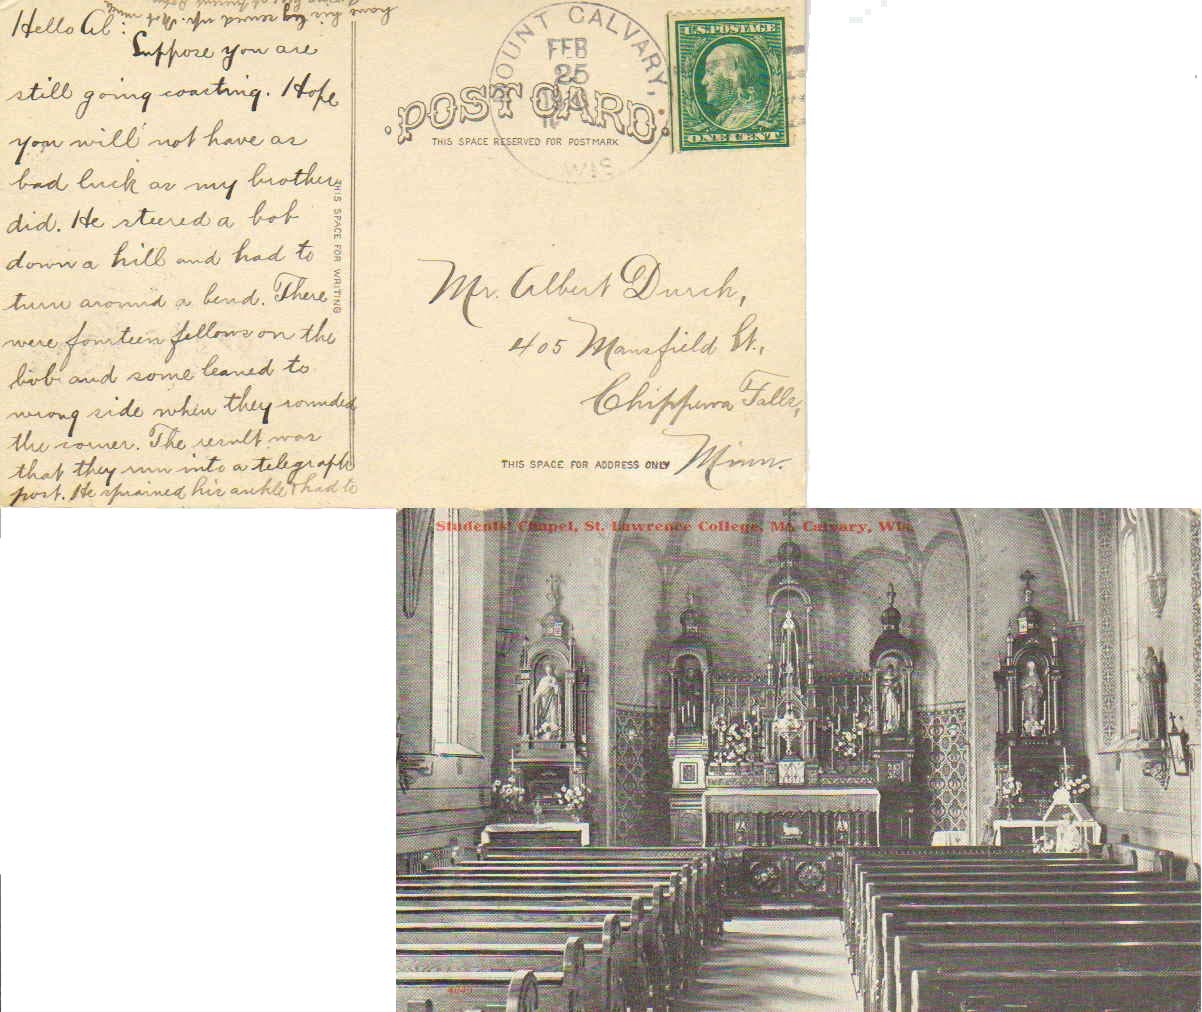 Hello Al:
Suppose you are
still going coasting. Hope
you will not have as
bad luck as my brother
did. He steered a bob
down a hill and had to
turn around a bend. There
were fourteen fellows on the
bob and some leaned to
wrong side when they rounded
the corner. The result was
that they run into a telegraph
post. He sprained his ankle & had to
have his leg sewed up. Not
THIS SPACE FOR WRITING
MOUNT CALVARY,
FEB
25
WIS
POST CARD
THIS SPACE RESERVED FOR POSTMARK
U.S. POSTAGE
ONE CENT
Mr. Albert Durch,
405 Mansfield St.,
Chippewa Falls,
Minn.
THIS SPACE FOR ADDRESS ONLY
Students' Chapel, St. Lawrence College, Mt. Calvary, Wis.